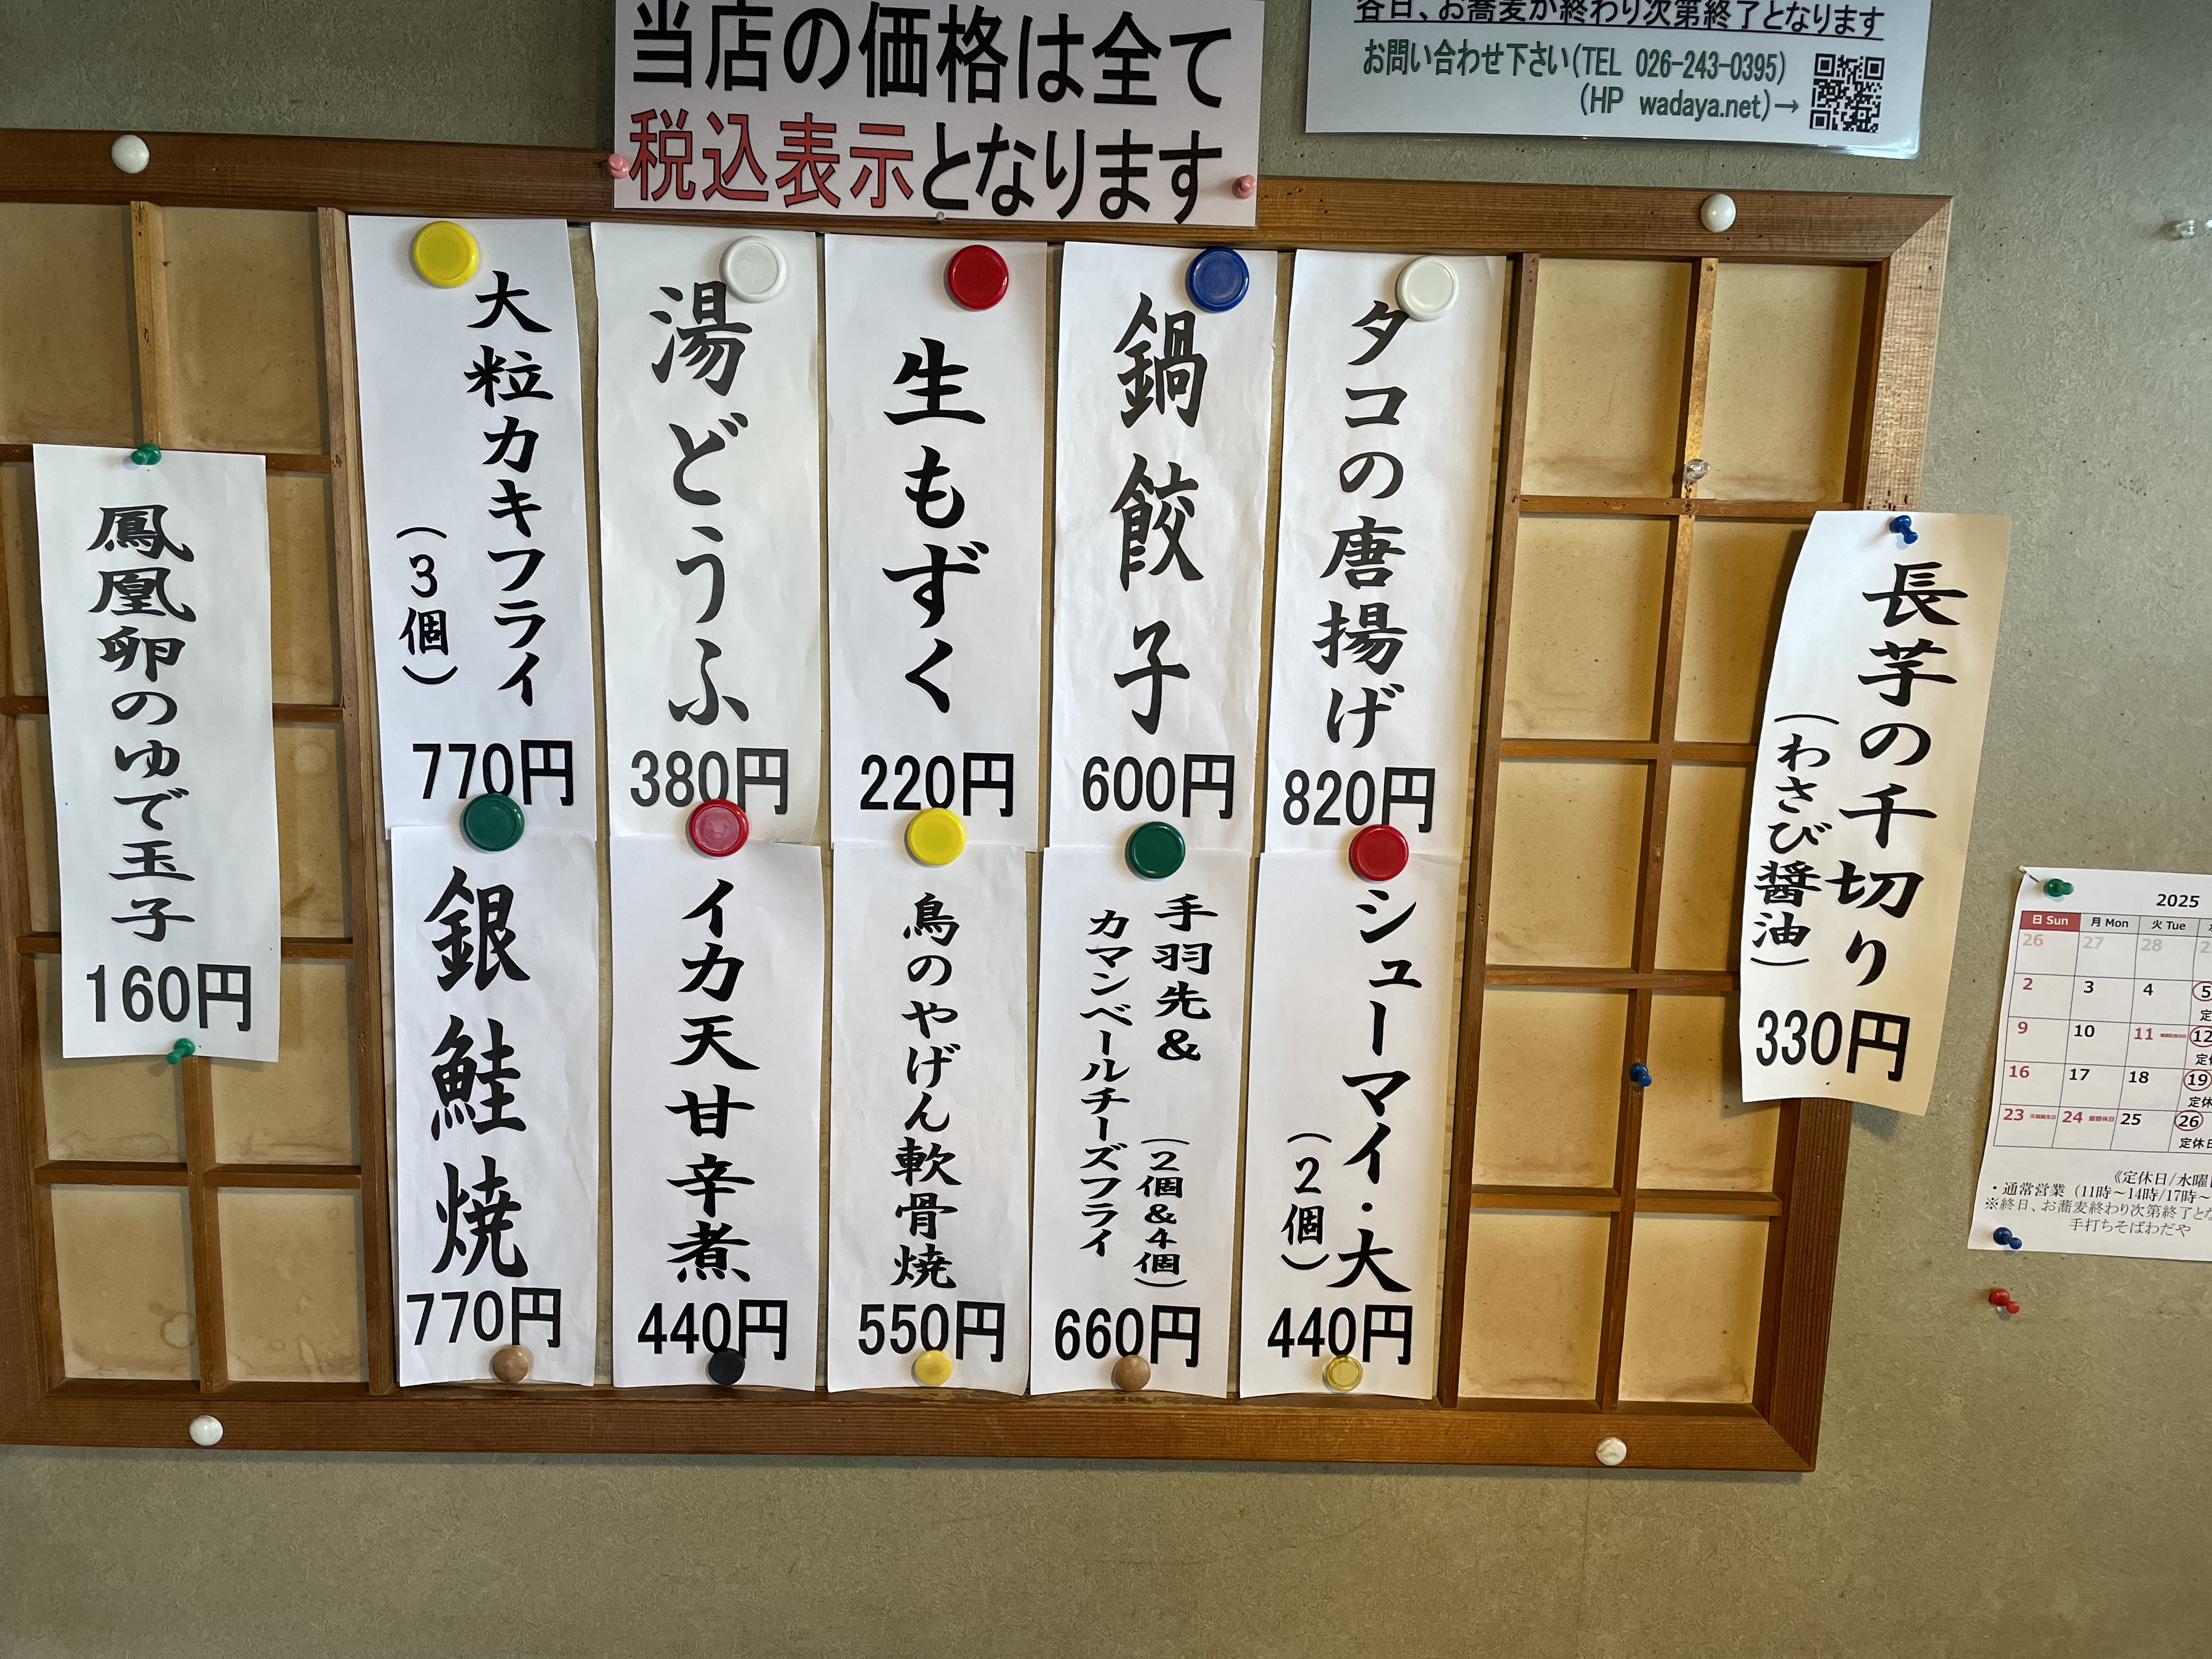 当店の価格は全て
税込表示となります
各日、お蕎麦が終わり次第終了となります
お問い合わせ下さい(TEL 026-243-0395)
(HP wadaya.net)→
長芋の千切り
(わさび醤油)
330円
タコの唐揚げ
820円
鍋餃子
600円
生もずく
220円
湯どうふ
380円
大粒カキフライ
(3個)
770円
シューマイ・大
(2個)
440円
手羽先&
(2個&4個)
カマンベールチーズフライ
660円
鳥のやげん軟骨焼
550円
イカ天甘辛煮
440円
銀鮭焼
770円
鳳凰卵のゆで玉子
160円
2025
日 Sun 月 Mon 火 Tue
26 27 28
2 3 4 5
9 10 11 12
16 17 18 19
定休
23 24 25 26
定休日
《定休日/水曜
・通常営業 (11時~14時/17時~
※終日、お蕎麦終わり次第終了とな
手打ちそばわだや